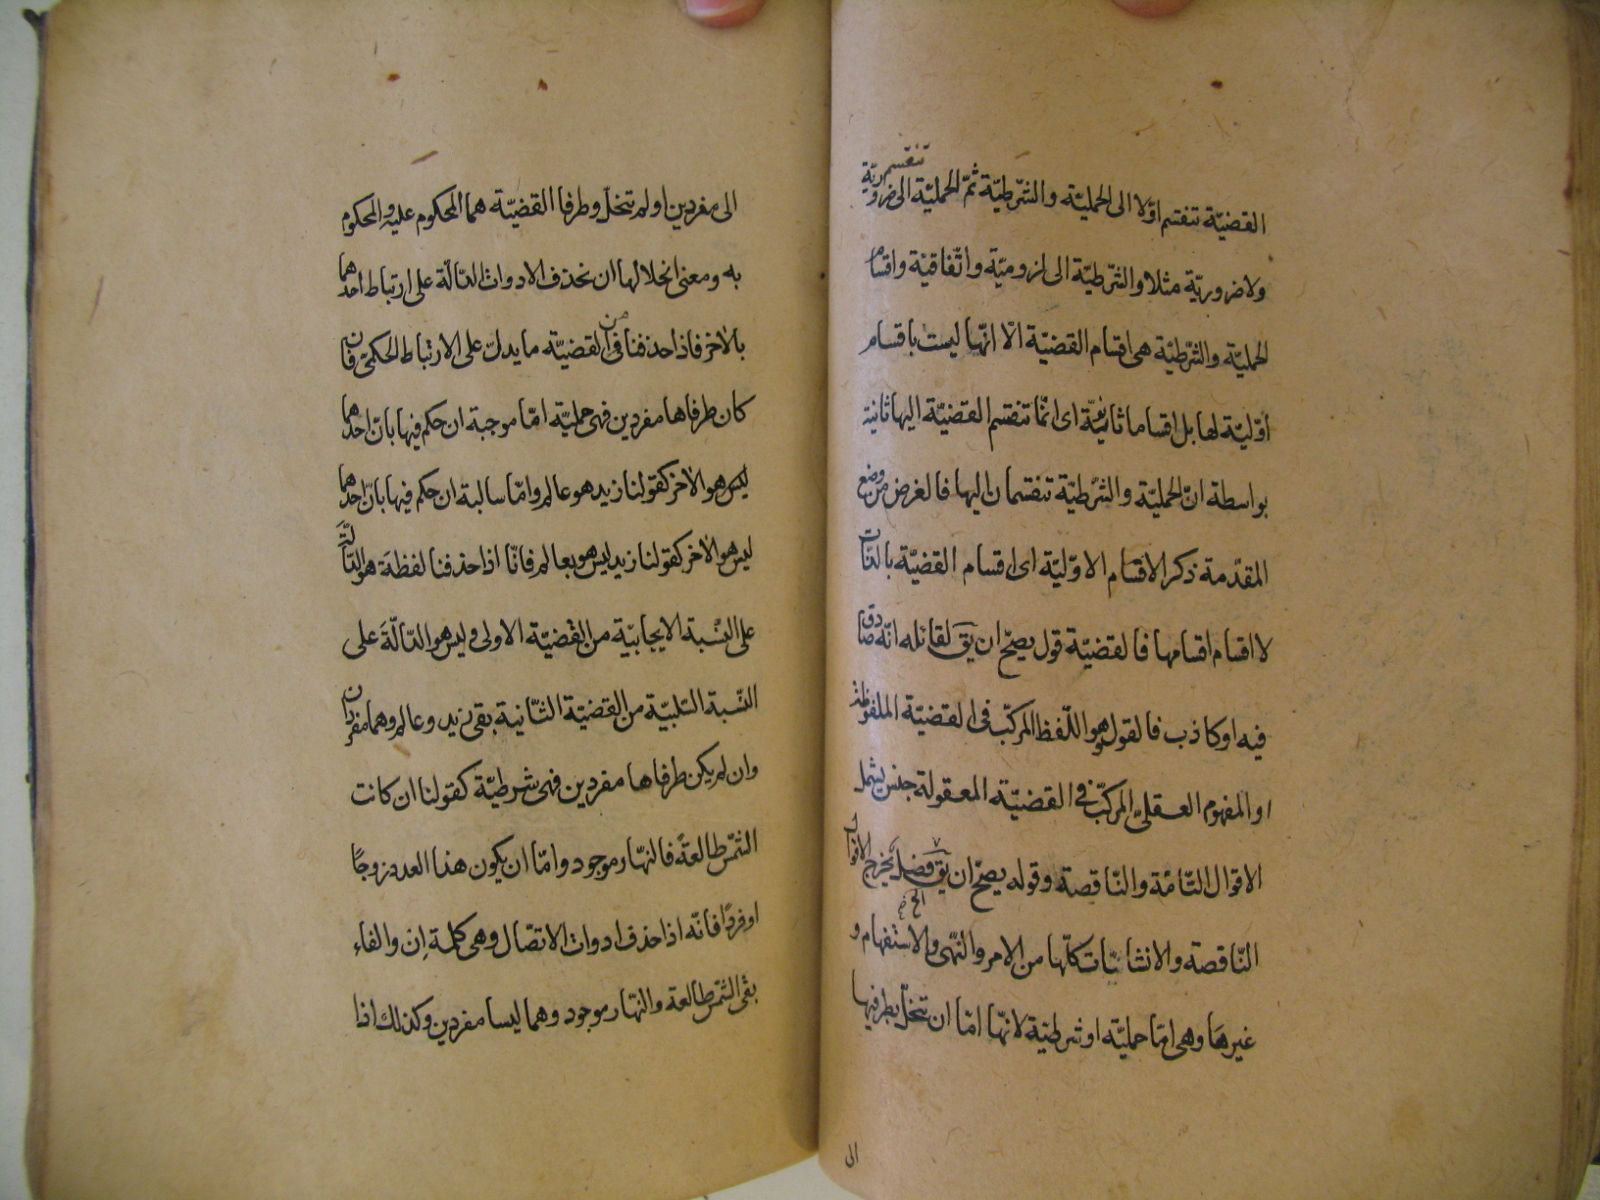 القضيّة تنقسم اوّلا الى الحمليّة والشّرطيّة ثمّ الحمليّة تنقسم الى ضروريّة
ولاضروريّة مثلا والشّرطيّة الى لزوميّة واتّفاقيّة واقسام
الحمليّة والشّرطيّة هى اقسام القضيّة الّا انّها ليست باقسام
اوّليّة لها بل اقساما ثانويّة اى انّما تنقسم القضيّة اليها ثانية
بواسطة انّ الحمليّة والشّرطيّة تنقسمان اليها فالغرض من وضع
المقدّمة ذكر الاقسام الاوّليّة اى اقسام القضيّة بالذّات
لا اقسام اقسامها فالقضيّة قول يصحّ ان يق لقائله انّه صادق
فيه او كاذب فالقول وهو اللّفظ المركّب فى القضيّة الملفوظة
او المفهوم العقلىّ المركّب فى القضيّة المعقولة جنس يشمل
الاقوال التّامّة والنّاقصة وقوله يصحّ ان يق فصل يخرج الاقوال
النّاقصة والانشائيّات كلّها من الامر والنّهى والاستفهام و
غيرها وهى امّا حمليّة او شرطيّة لانّها امّا ان تنحلّ بطرفيها
الى
الى مفردين او لم تنحلّ وطرفا القضيّة هما المحكوم عليه والمحكوم
به ومعنى انحلالها ان نحذف الادوات الدّالّة على ارتباط احدهما
بالاخر فاذا حذفنا من القضيّة ما يدلّ على الارتباط الحكمىّ فان
كان طرفاها مفردين فهى حمليّة امّا موجبة ان حكم فيها بانّ احدهما
ليس هو الاخر كقولنا زيد هو عالم وامّا سالبة ان حكم فيها بانّ احدهما
ليس هو الاخر كقولنا زيد ليس هو بعالم فانّا اذا حذفنا لفظة هو الدّالّة
على النّسبة الايجابيّة من القضيّة الاولى و ليس هو الدّالّة على
النّسبة السّلبيّة من القضيّة الثّانية بقى زيد وعالم وهما مفردان
وان لم يكن طرفاها مفردين فهى شرطيّة كقولنا ان كانت
الشّمس طالعةً فالنّهار موجود وامّا ان يكون هذا العدد زوجًا
او فردًا فانّه اذا حذف ادوات الاتّصال وهى كلمة اِن والفاء
بقى الشّمس طالعة والنّهار موجود وهما ليسا مفردين وكذلك اذا